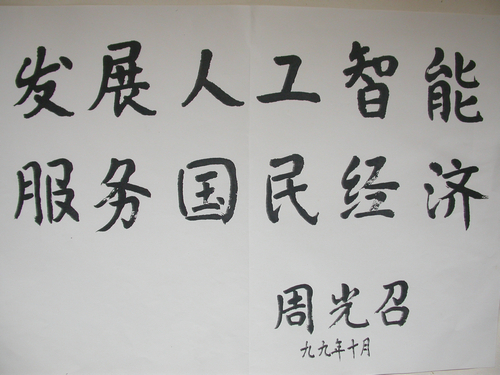 发展人工智能
服务国民经济
周光召
九九年十月